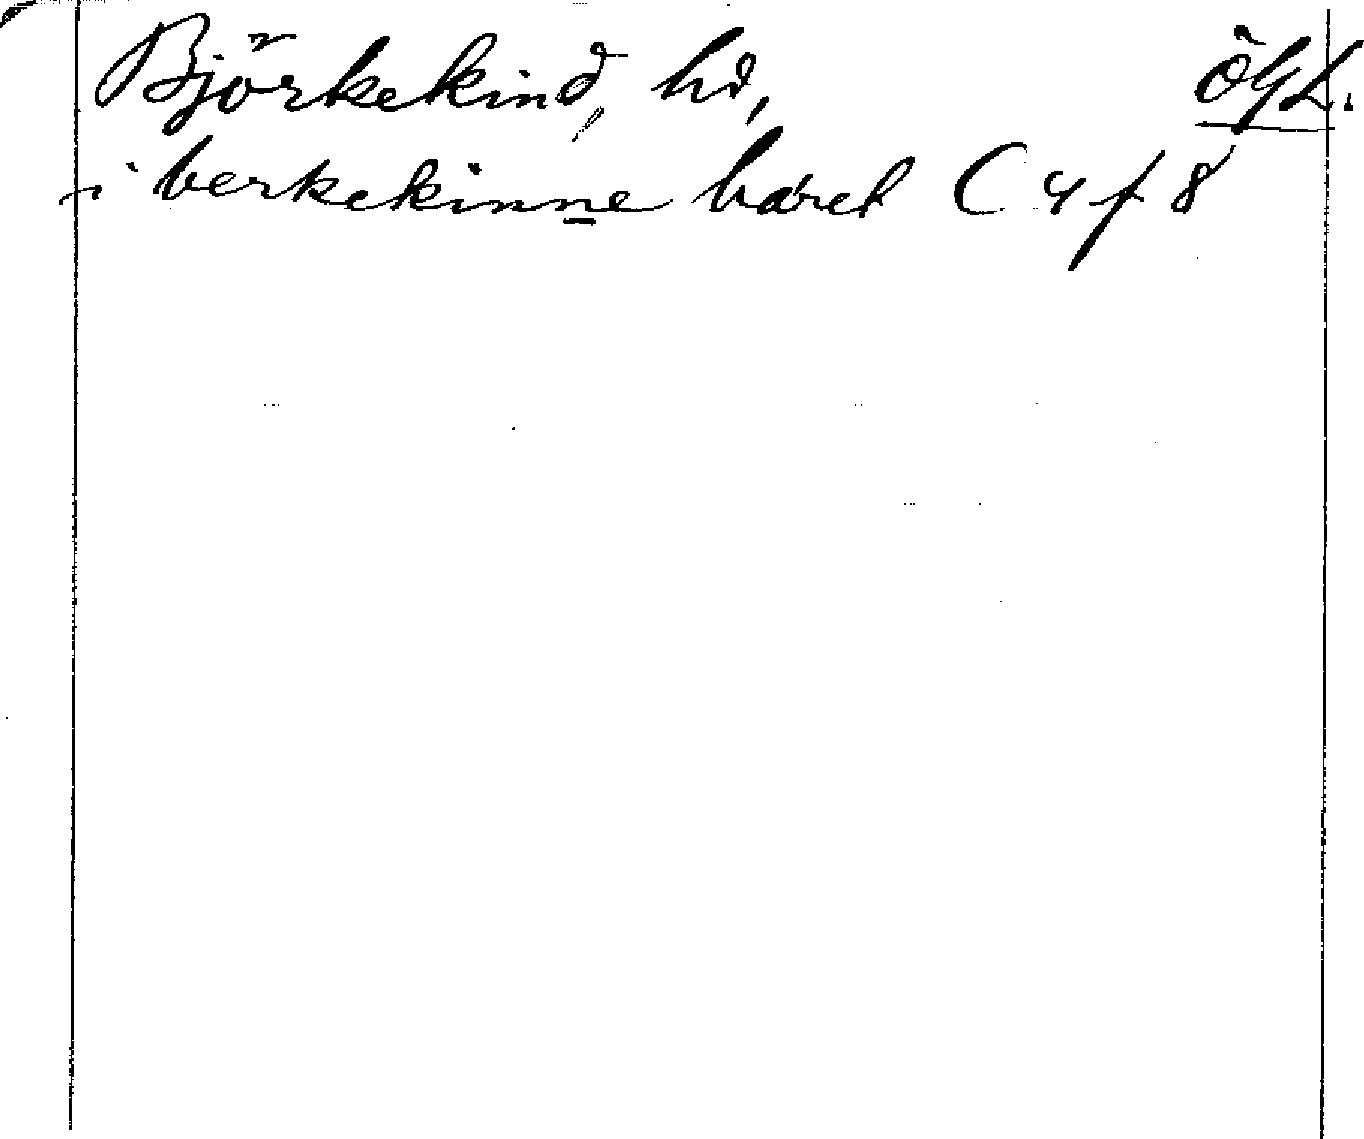 Björkekind, hd, ÖgL.
i berkekinne häred C 4 f 8